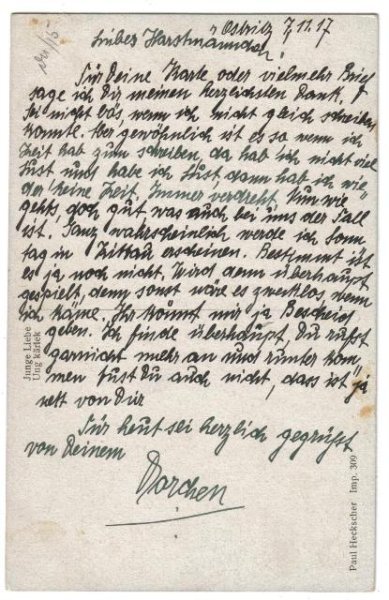 Ostritz 7, 11. 17
Liebes Horstmännchen!
Für Deine Karte oder vielmehr Brief
sage ich Dir meinen herzlichsten Dank.
Sei nicht bös, wenn ich nicht gleich schreiben
konnte. Aber gewöhnlich ist es so wenn ich
Zeit hab zum schreiben, da hab ich nicht viel
Lust und habe ich Lust, dann hab ich wie-
der keine Zeit. Immer verdreht. Nun wie
gehts, doch gut, was auch bei uns der Fall
ist. Ganz wahrscheinlich werde ich Sonn
tag in Zittau erscheinen. Bestimmt ist
es ja noch nicht. Wird denn überhaupt
gespielt, denn sonst wäre es zwecklos, wenn
ich käme. Ihr könnt mir ja Bescheid
geben. Ich finde überhaupt, Du rufst
garnicht mehr an und runter kom-
men tust Du auch nicht, dass ist ja
nett von Dir
Für heut sei herzlich gegrüsst
von Deinem
Dorchen
Junge Liebe
Ung kärlek
Paul Heckscher Imp. 309